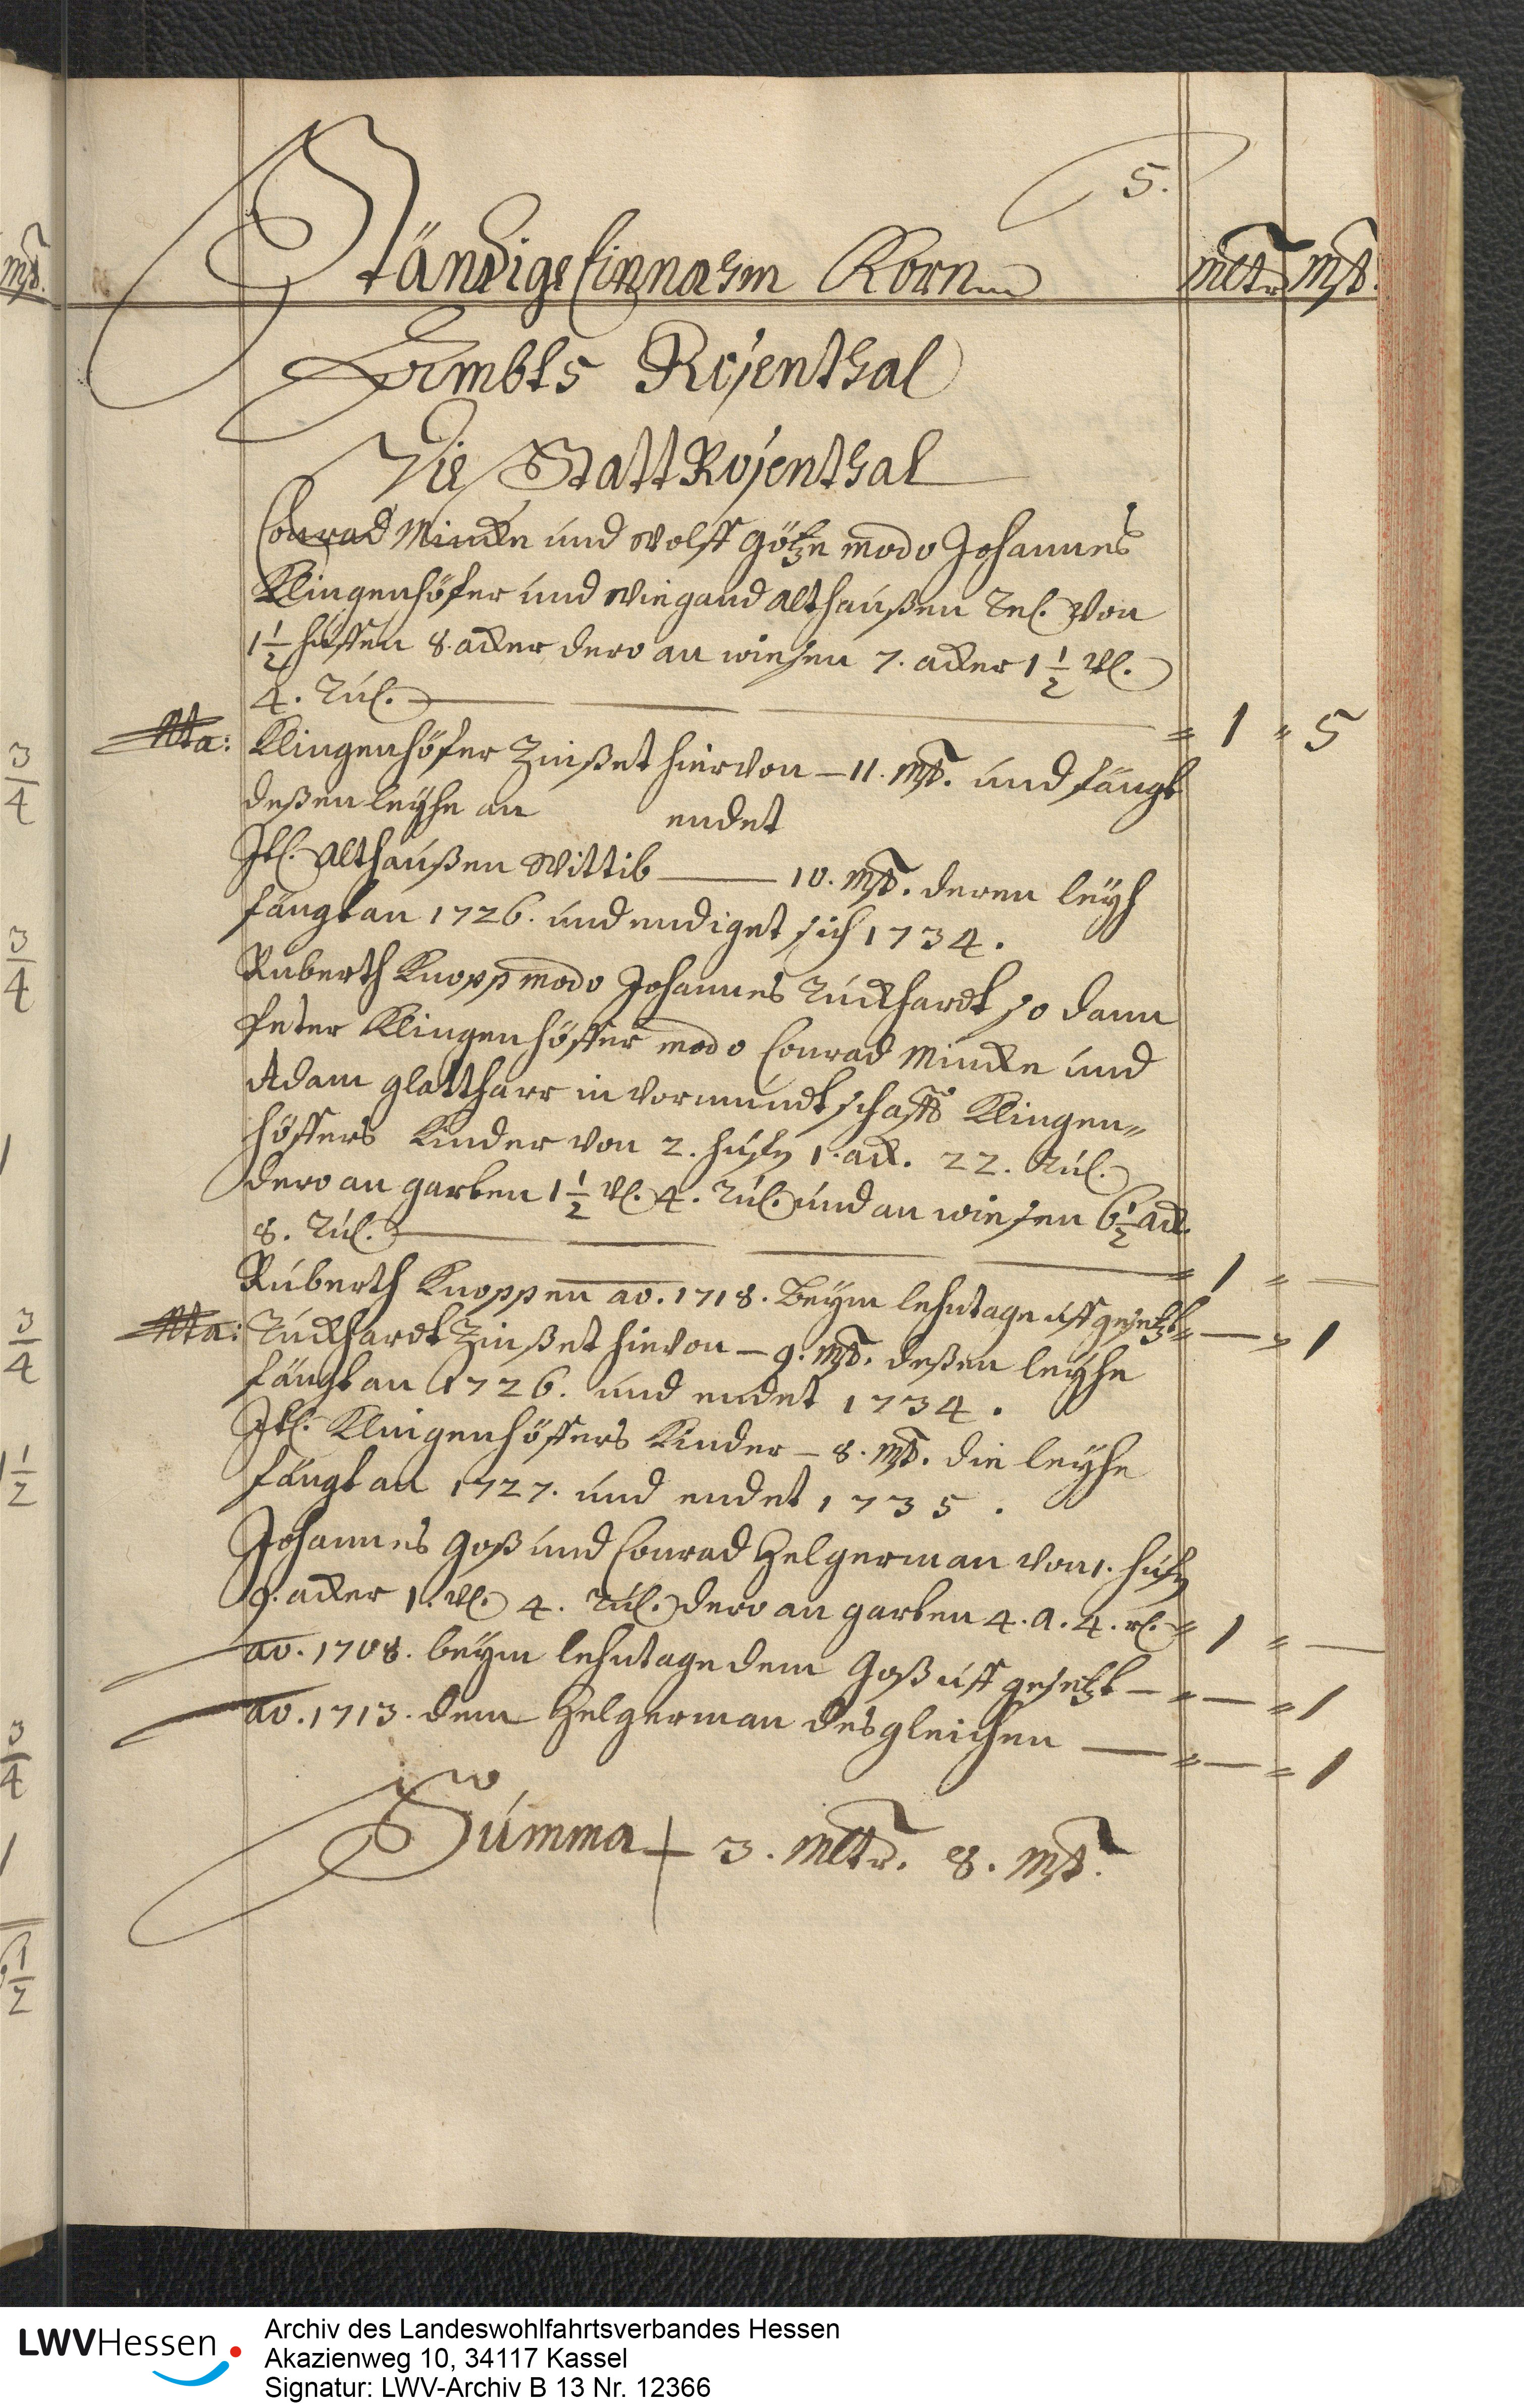 5.
Ständige Einnahm Korn mltr. mst.
Ambts Rosenthal
Die Statt Rosenthal
Conrad Mincke und Wolff Götze modo Johannes
Klingenhöfer und Wiegand Althaußen Rel. von
1 1/2 huffen 8. acker dero an wiesen 7. acker 1 1/2 vl.
4. Rut. = 1 = 5
Nta: Klingenhöfer Zinßet hiervon – 11. mst. und fängt
deßen leyhe an endet
Itl. Althaußen Wittib — 10. mst. deren leyh
fängt an 1726. und endiget sich 1734.
Ruberth Knopp modo Johannes Ruckhardt so dann
Peter Klingenhöffer modo Conrad Mincke und
Adam Glattharr in vormundtschafft Klingen=
höffers Kinder von 2. hufn 1. ack. 22. Rut.
dero an garten 1 1/2 vl. 4. Rut. und an wiesen 6 1/2 ack.
8. Rut. = 1 = —
Ruberth Knoppen ao. 1718. Beym lehntage uffgesetzt = — = 1
Nta: Ruckhardt Zinßet hievon – 9. mst. deßen leyhe
fängt an 1726. und endet 1734.
Itl. Klingenhöffers Kinder – 8. mst. die leyhe
fängt an 1727. und endet 1735.
Johannes Goß und Conrad Helgerman von 1. hufn
9. acker 1. vl. 4. Rut. dero an garten 4. a. 4. rt. = 1 = —
ao. 1708. beym lehntage dem Goß uff gesetzt – = — = 1
ao. 1713. dem Helgerman desgleichen — = — = 1
Summa 3. mltr. 8. mst.
mst.
3/4
3/4
1
3/4
1 1/2
3/4
1
1/2
LWVHessen
Archiv des Landeswohlfahrtsverbandes Hessen
Akazienweg 10, 34117 Kassel
Signatur: LWV-Archiv B 13 Nr. 12366